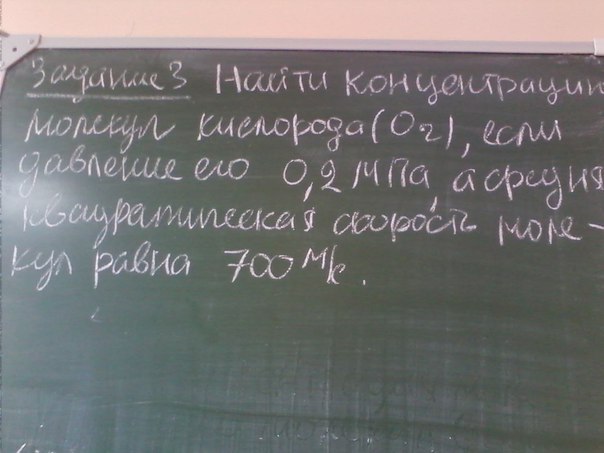 Задание 3 Найти концентрации
молекул кислорода (O₂), если
давление его 0,2 МПа, а средня
квадратическая скорость моле-
кул равна 700 м/с.